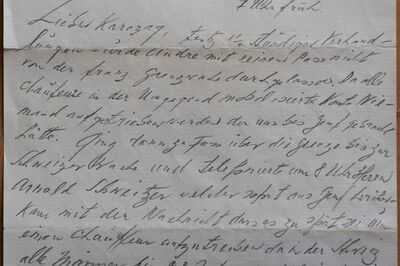 7 Uhr früh
Lieber Karczag, trotz 1½ stündigen Verhand-
lungen wurde Andre mit seinem Pass nicht
von der franz Grenzwache durchgelassen. Da alle
Chauffeure in der Umgegend mobilisiert konnte Nie-
mand aufgetrieben werden der uns bis Genf gebracht
hätte. Ging dann zu Fuss über die Grenze bis zur
Schweizer Wache und telefonierte um 8 Uhr Herrn
Arnold Schweitzer welcher sofort aus Genf
kam mit der Nachricht dass es zu spät sei um
einen Chauffeur aufzutreiben da in der Schweiz
alle Männer bis